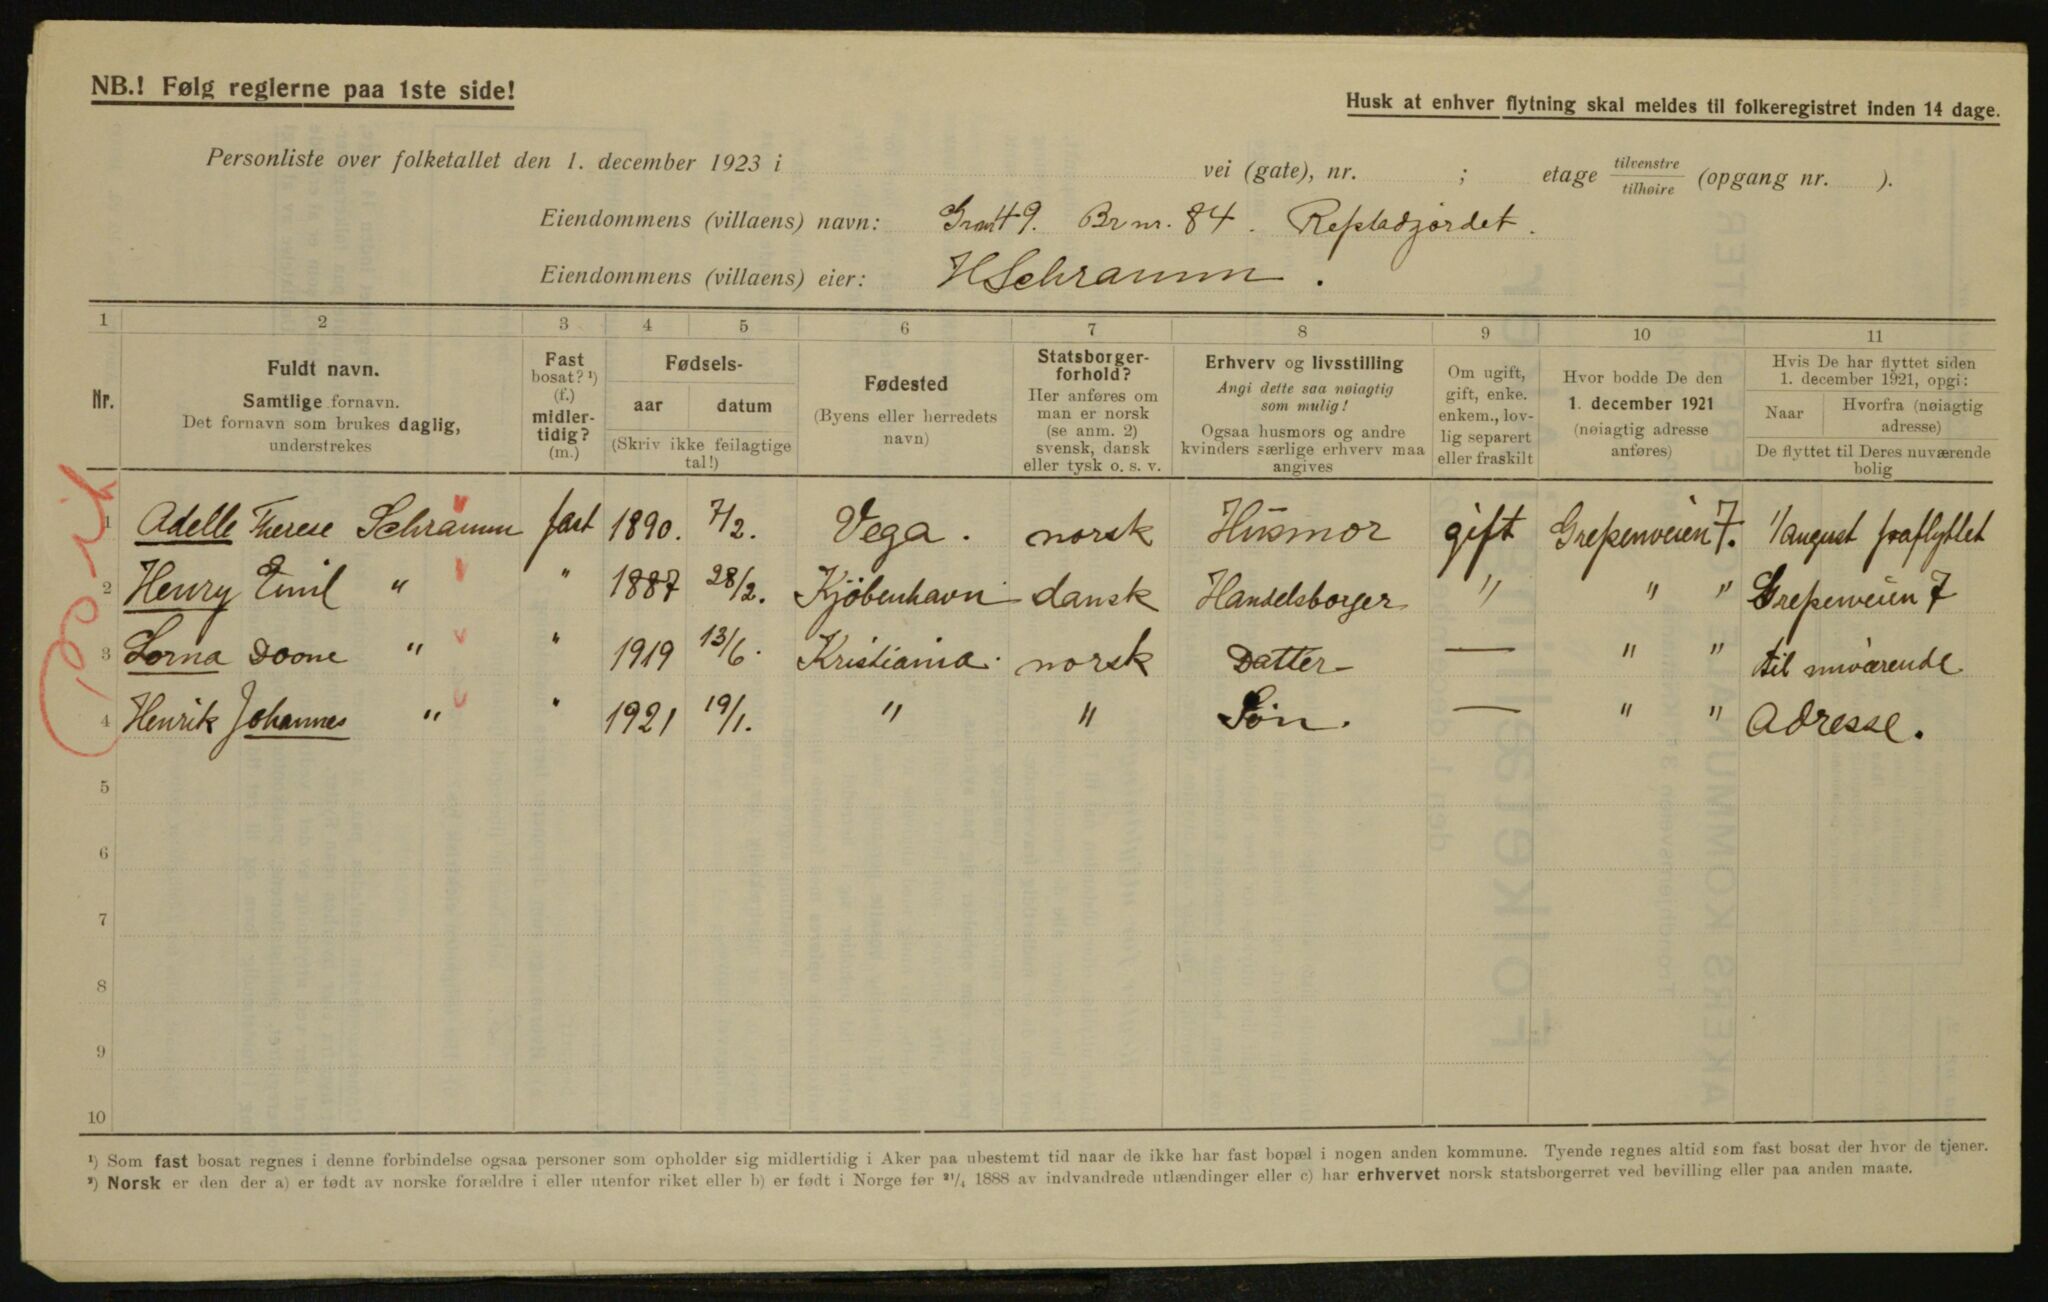 NB.! Følg reglerne paa 1ste side!
Husk at enhver flytning skal meldes til folkeregistret inden 14 dage.
Personliste over folketallet den 1. december 1923 i vei (gate), nr. ; etage tilvenstre/tilhøire (opgang nr. ).
Eiendommens (villaens) navn: 49. Br nr. 84.
Eiendommens (villaens) eier: H Schramm.
1 2 3 4 5 6 7 8 9 10 11
Nr.
Fuldt navn.
Samtlige fornavn.
Det fornavn som brukes daglig,
understrekes
Fast
bosat? ¹)
(f.)
midler-
tidig?
(m.)
Fødsels-
aar datum
(Skriv ikke feilagtige
tal!)
Fødested
(Byens eller herredets
navn)
Statsborger-
forhold?
Her anføres om
man er norsk
(se anm. 2)
svensk, dansk
eller tysk o. s. v.
Erhverv og livsstilling
Angi dette saa nøiagtig
som mulig!
Ogsaa husmors og andre
kvinders særlige erhverv maa
angives
Om ugift,
gift, enke.
enkem., lov-
lig separert
eller fraskilt
Hvor bodde De den
1. december 1921
(nøiagtig adresse
anføres)
Hvis De har flyttet siden
1. december 1921, opgi:
Naar Hvorfra (nøiagtig
adresse)
De flyttet til Deres nuværende
bolig
1 Adelle Therese Schramm fast 1890. 7/2. Vega. norsk Husmor gift Grefsenveien 7. 1/august fraflyttet
2 Henry Emil " " 1887 28/2. Kjöbenhavn dansk Handelsborger " " " Grefsenveien 7
3 Lorna Doone " " 1919 13/6. Kristiania. norsk Datter — " " til nuværende
4 Henrik Johannes " " 1921 19/1. " " Søn. — " " Adresse.
5
6
7
8
9
10
¹) Som fast bosat regnes i denne forbindelse ogsaa personer som opholder sig midlertidig i Aker paa ubestemt tid naar de ikke har fast bopæl i nogen anden kommune. Tyende regnes altid som fast bosat der hvor de tjener.
²) Norsk er den der a) er født av norske forældre i eller utenfor riket eller b) er født i Norge før ²¹/₄ 1888 av indvandrede utlændinger eller c) har erhvervet norsk statsborgerret ved bevilling eller paa anden maate.